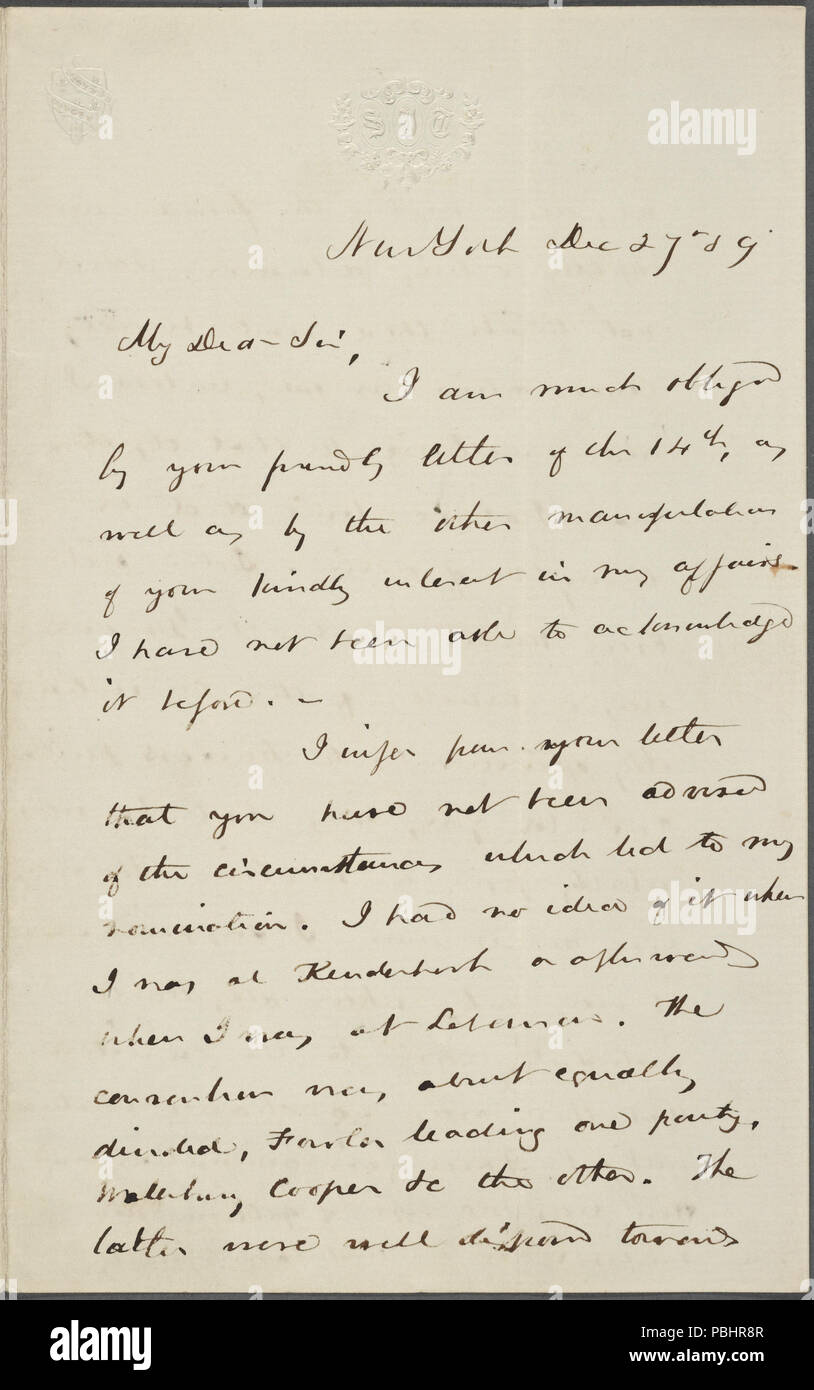 S J T
New York Dec 27" 59
My Dear Sir,
I am much obliged
by your friendly letter of the 14th, as
well as by the other manifestations
of your kindly interest in my affairs.
I have not been able to acknowledge
it before. –
I infer from your letter
that you have not been advised
of the circumstances which led to my
nomination. I had no idea of it when
I was at Kinderhook or afterwards
when I was at Lebanon. The
convention was about equally
divided, Fowler leading one party,
Waterbury Cooper &c the other. The
latter were well disposed towards
alamy
alamy
Image ID: PBHR8R
www.alamy.com